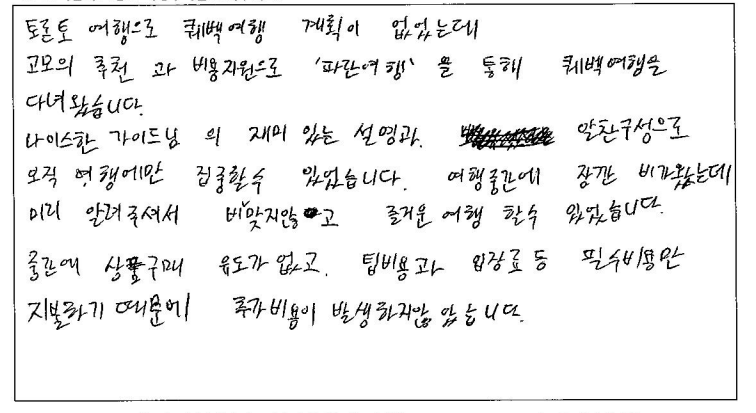 토론토 여행으로 퀘백여행 계획이 없었는데
고모의 추천 과 비용지원으로 '파란여행' 을 통해 퀘백여행을
다녀왔습니다.
나이스한 가이드님 의 재미 있는 설명과. 알찬구성으로
오직 여행에만 집중할수 있었습니다. 여행중간에 잠간 비가왔는데
미리 알려주셔서 비맞지않고 즐거운 여행 할수 있었습니다.
중간에 상품구매 유도가 없고. 팁비용과 입장료 등 필수비용만
지불하기 때문에 추가비용이 발생하지않았습니다.